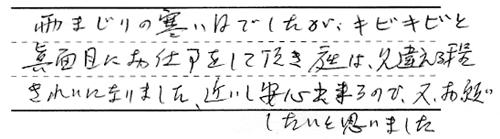 雨まじりの寒い日でしたが、キビキビと
真面目にお仕事をして頂き庭は、見違える程
きれいになりました、近いし安心出来るので、又、お願い
したいと思いました